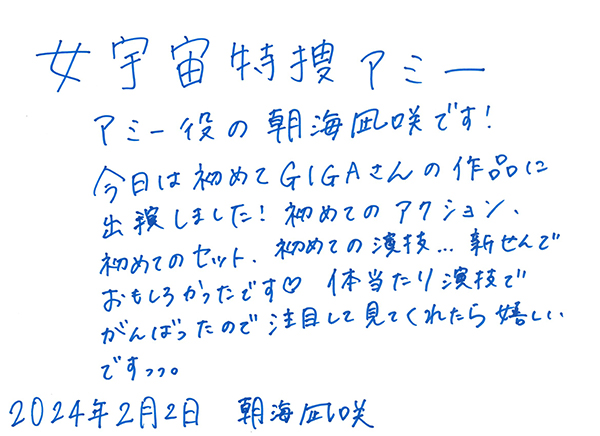 女宇宙特捜アミー
アミー役の朝海凪咲です!
今日は初めてGIGAさんの作品に
出演しました!初めてのアクション、
初めてのセット、初めての演技...新せんで
おもしろかったです♡ 体当たり演技で
がんばったので注目して見てくれたら嬉しい
ですっっ。
2024年2月2日 朝海凪咲